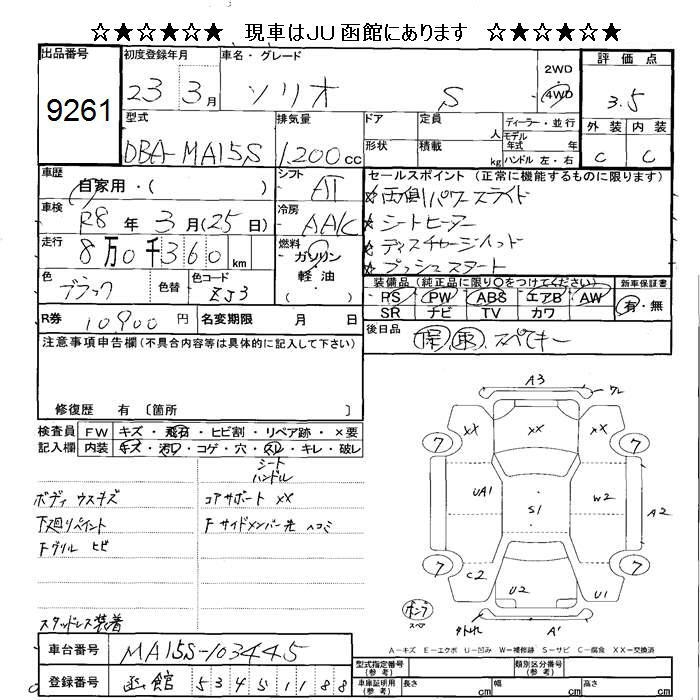 ☆★☆★☆ 現車はJU函館にあります ☆★☆★☆
出品番号 初度登録年月 車名・グレード 評価点
9261 23 3月 ソリオ S 2WD 4WD 3.5
型式 排気量 ドア 定員 人 ディーラー・並行 外装 内装
DBA-MA15S 1.200cc 形状 積載 kg モデル年式 年 ハンドル 左・右 C C
車歴 自家用・( ) シフト AT セールスポイント (正常に機能するものに限ります)
★両側パワースライド
車検 R8年3月(25日) 冷房 AAC ★シートヒーター
走行 8万0千360km 燃料 ガソリン 軽油 ★ディスチャージヘッド
★プッシュスタート
色 ブラック 色替 色コード ZJ3 装備品(純正品に限り○をつけてください) 新車保証書
PS PW ABS エアB AW 有・無
SR ナビ TV カワ
R券 10900円 名変期限 月 日 後日品 保 取 スペアキー
注意事項申告欄(不具合内容等は具体的に記入して下さい)
修復歴 有 〔箇所 〕
検査員 FW キズ・飛石・ヒビ割・リペア跡・×要
記入欄 内装 キズ・汚れ・コゲ・穴・スレ・キレ・破レ
シート
ハンドル
ボディ ウスキズ コアサポート XX
下廻りペイント Fサイドメンバー先 ヘコミ
Fグリル ヒビ
スタッドレス装着
A3 ワレ
XX XX
7 7
UA1 S1 W2 A2
7 7
C2 U2 U1
ポンプ
スペア
タトレ A1
A-キズ E-エクボ U-凹み W-補修跡 S-サビ C-腐食 XX-交換済
車台番号 MA15S-103445 型式指定番号(参考) 類別区分番号(参考)
登録番号 函館 534 5 1188 車庫証明用(参考) 長さ cm 幅 cm 高さ cm